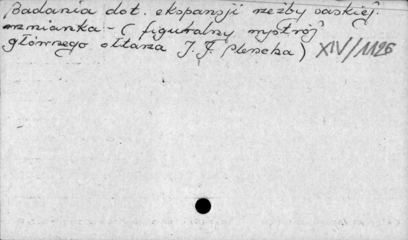 Badania dot. ekspansji rzeźby saskiej.
wzmianka - ( figuralny wystrój
głównego ołtarza J. J. Plencka ) XIV/1126